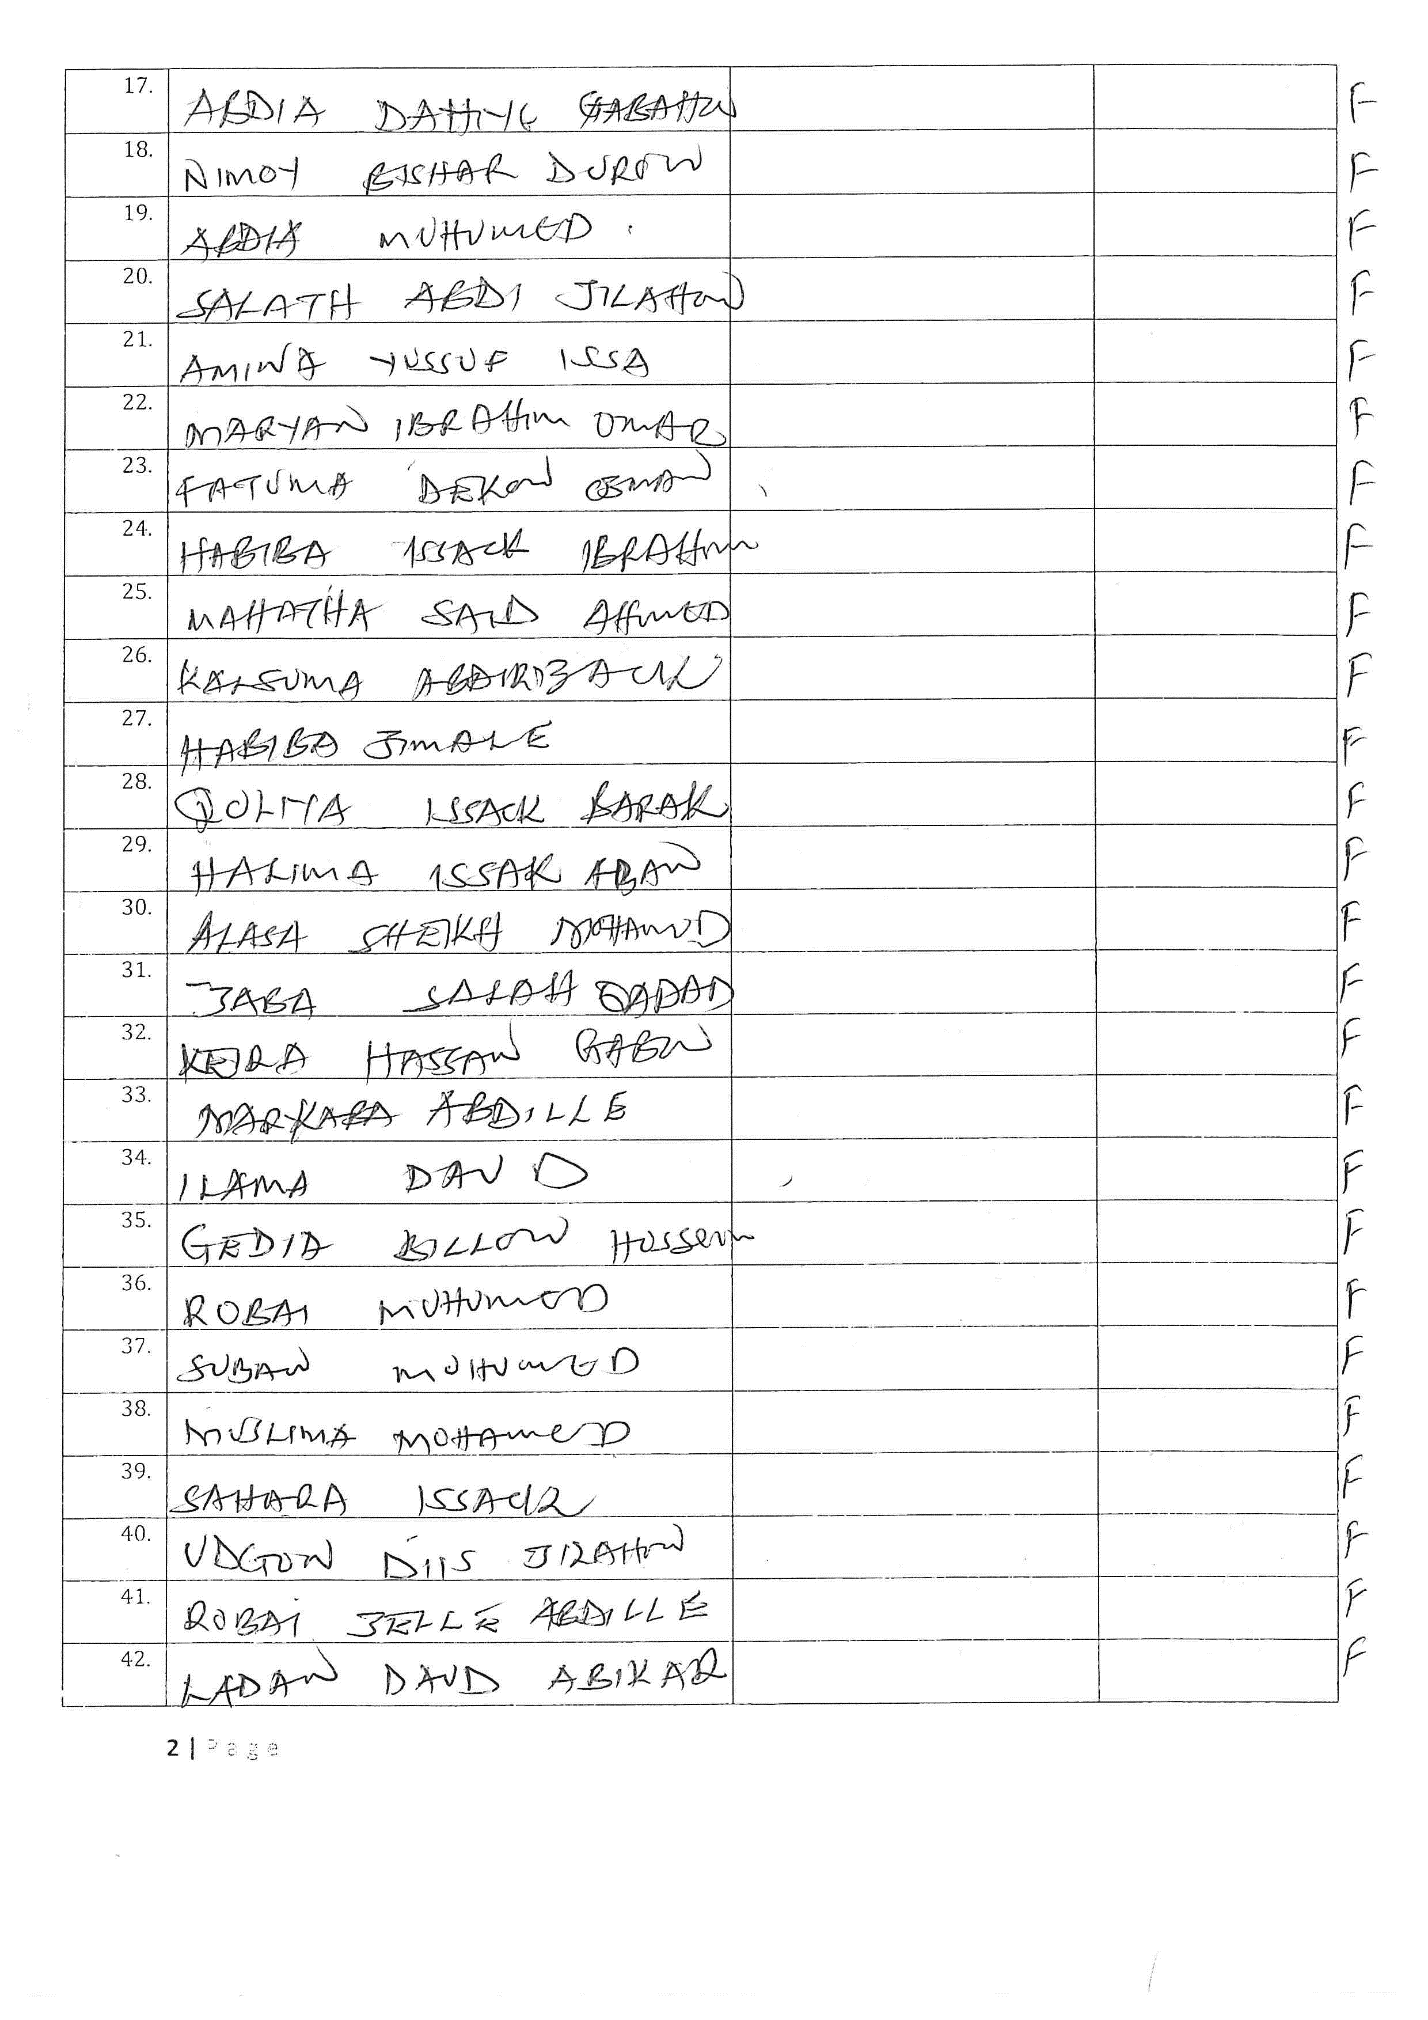 17. ABDIA DAHIYE GABAHW F
18. NIMOY BISHAR DUROW F
19. ABDIA MUHUMED F
20. SALATH ABDI JILAHOW F
21. AMINA YUSSUF ISSA F
22. MARYAN IBRAHIM OMAR F
23. FATUMA DEKOW OSMAN F
24. HABIBA ISSACK IBRAHIM F
25. MAHATHA SAID AHMED F
26. KALSUMA F
27. HABIBA JIMALE F
28. QOLIYA ISSACK BARAK F
29. HALIMA ISSAK ADAN F
30. ALASA SHEIKH MOHAMUD F
31. JABA SALAH QADAD F
32. KEIRA HASSAN GABOW F
33. MARKABA ABDILLE F
34. ILAMA DAUD F
35. GEDIA BILLOW HUSSEIN F
36. ROBAI MUHUMED F
37. SUBAN MUHUMED F
38. MUSLIMA MOHAMED F
39. SAHARA ISSACK F
40. UDGOON DIIS JIRAHOW F
41. ROBAI JELLE ABDILLE F
42. LADAN DAUD ABIKAR F
2 | Page